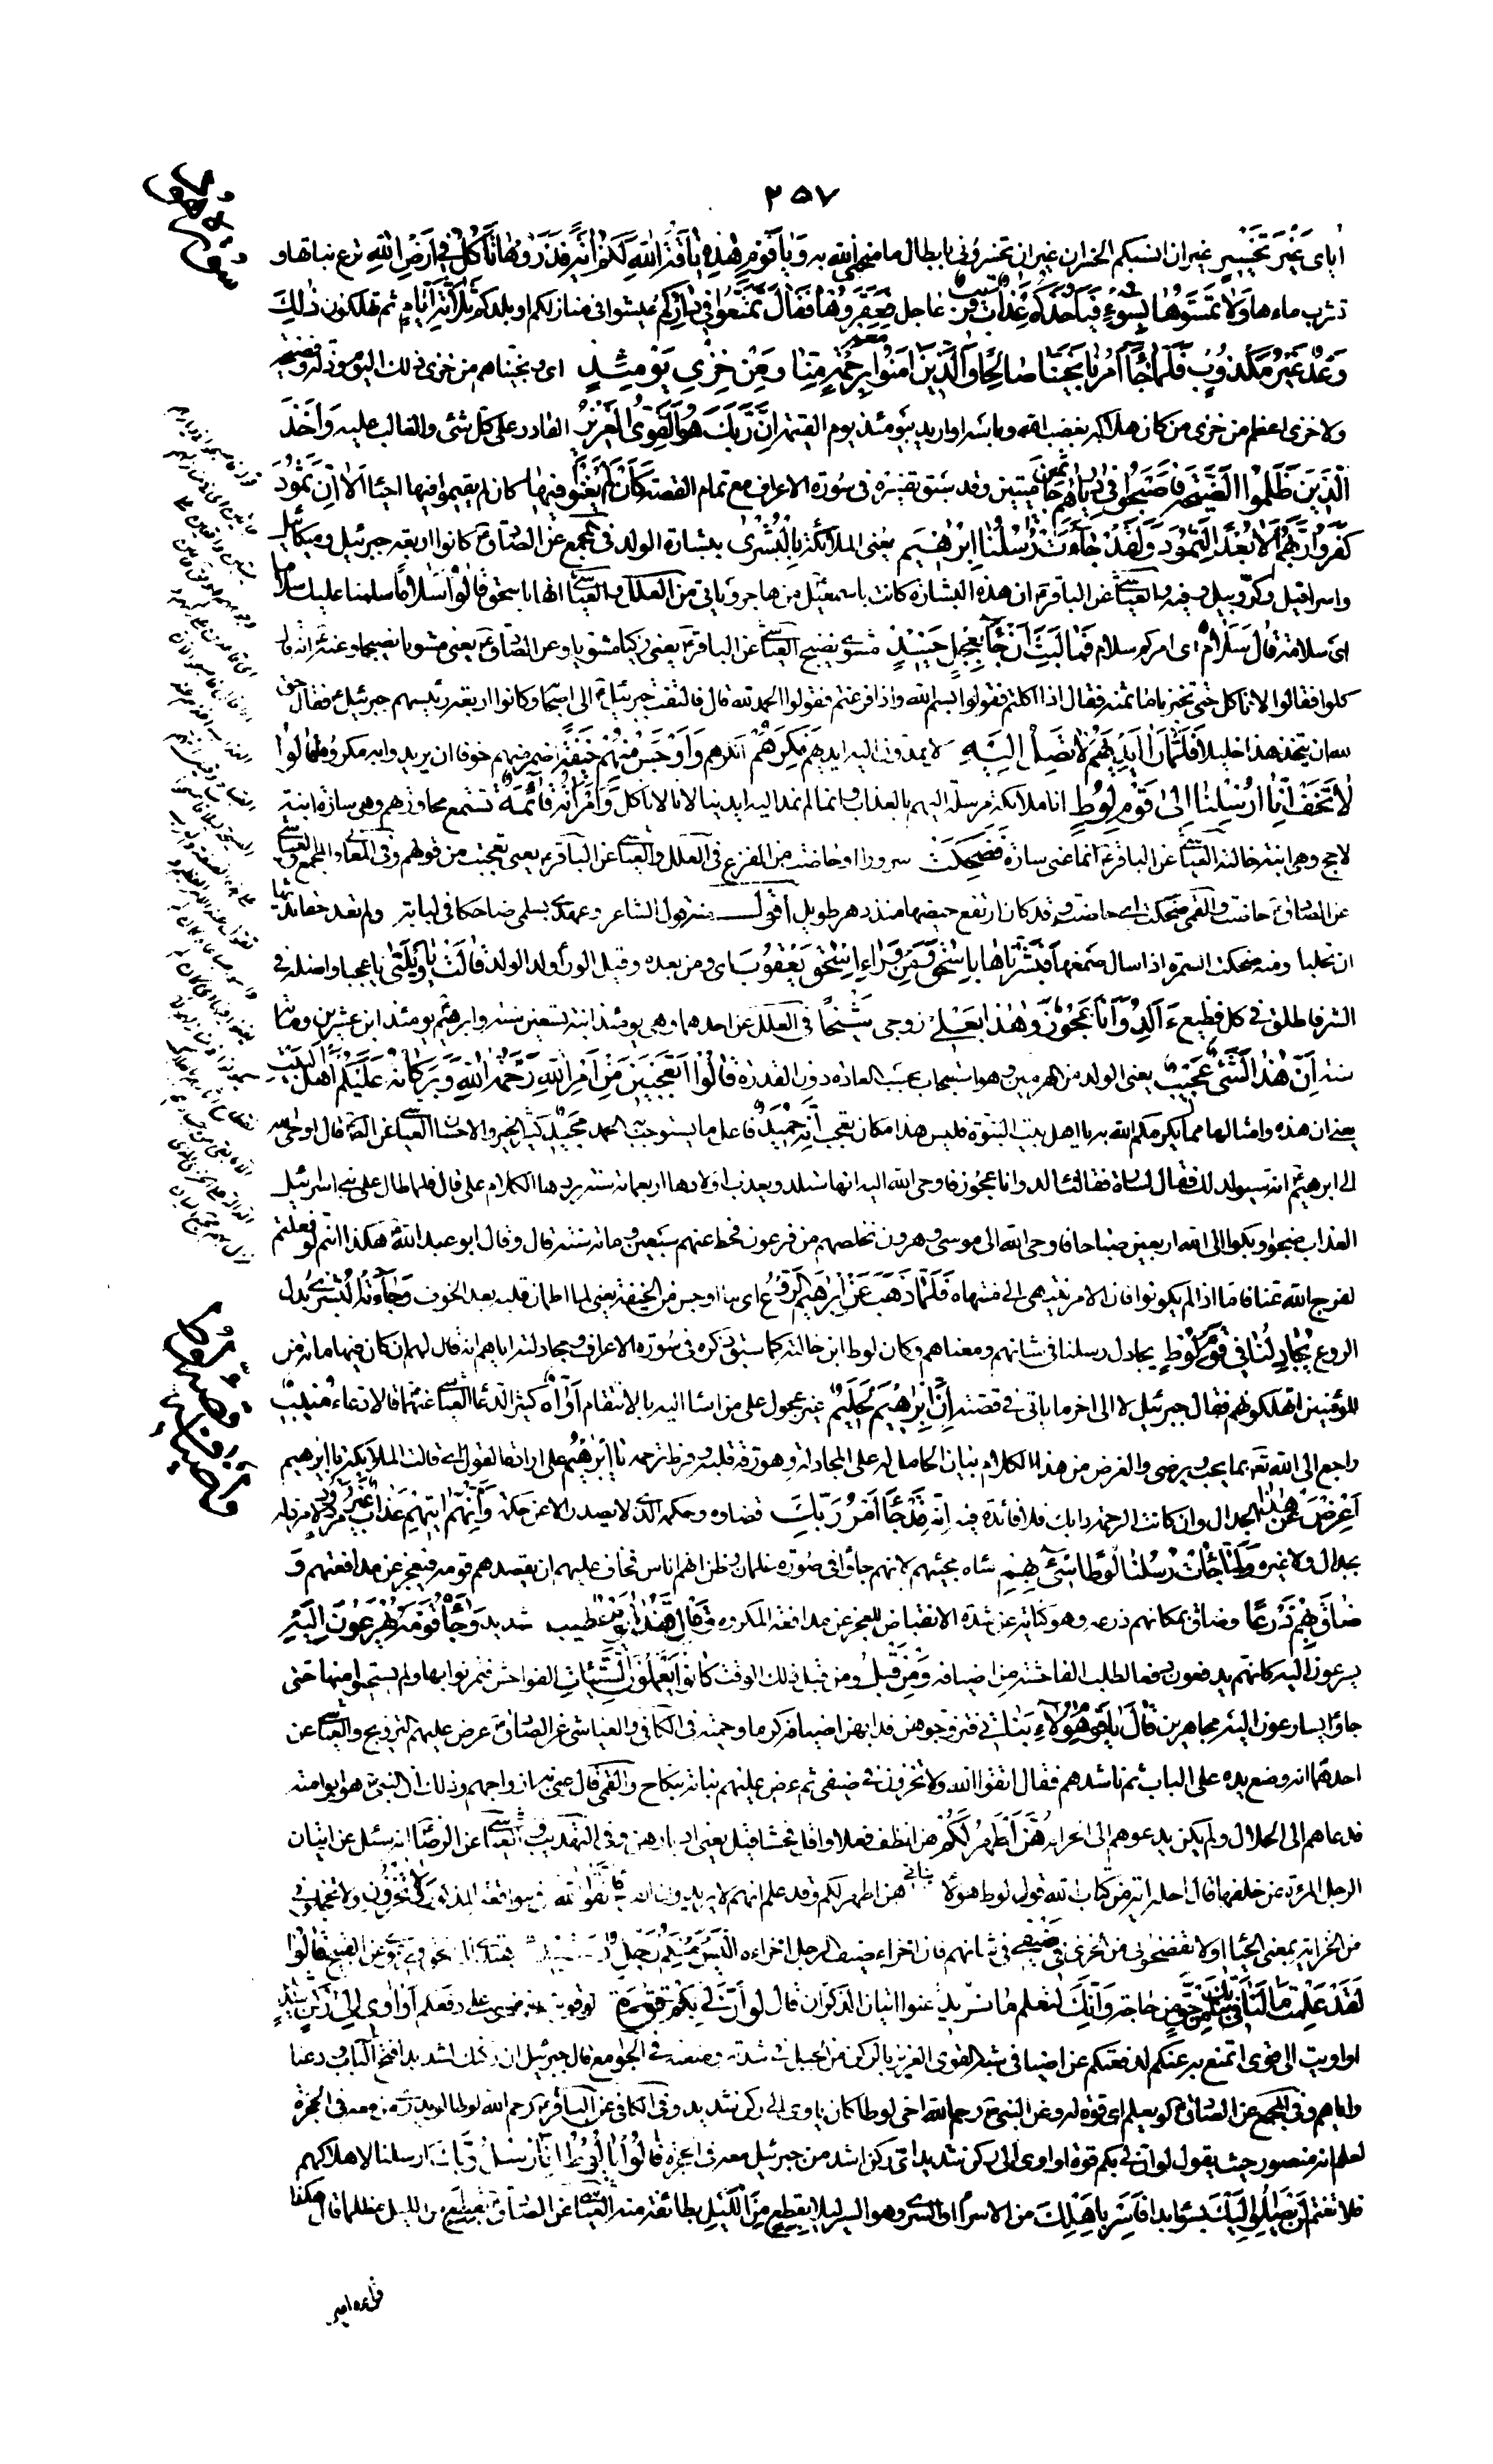 ٢٥٧
سورة هود
اياى غَيْرَ تَخْسِيرٍ غير ان انسبكم الى الخسران غير ان تخسرونى بابطال ما منحنى الله به وَيا قَوْمِ هٰذِهِ ناقَةُ اللهِ لَكُمْ آيَةً فَذَرُوها تَأْكُلْ فى اَرْضِ اللهِ ترع نباتها و
تشرب ماءها وَلا تَمَسُّوها بِسُوءٍ فَيَأْخُذَكُمْ عَذابٌ قَرِيبٌ عاجل فَعَقَرُوها فَقالَ تَمَتَّعُوا فى دارِكُمْ عيشوا فى منازلكم او بلدكم ثَلٰثَةَ اَيّامٍ ثم تهلكون ذٰلِكَ
وَعْدٌ غَيْرُ مَكْذُوبٍ فَلَمّا جاءَ اَمْرُنا نَجَّيْنا صالِحًا وَالَّذِينَ آمَنُوا مَعَهُ بِرَحْمَةٍ مِنّا وَمِنْ خِزْىِ يَوْمِئِذٍ اى ونجيناهم من خزى ذلك اليوم وذلّه وفضيحته
ولا خزى اعظم من خزى من كان هلاكه بغضب الله وبأسه او اريد بيومئذ يوم القيمة اِنَّ رَبَّكَ هُوَ الْقَوِىُّ الْعَزِيزُ القادر على كل شئ والغالب عليه وَاَخَذَ
الَّذِينَ ظَلَمُوا الصَّيْحَةُ فَاَصْبَحُوا فى دِيارِهِمْ جاثِمِينَ ميتين وقد سبق تفسيره فى سورة الاعراف مع تمام القصة كَاَنْ لَمْ يَغْنَوْا فِيها كان لم يقيموا فيها احياء اَلا اِنَّ ثَمُودَ
كَفَرُوا رَبَّهُمْ اَلا بُعْدًا لِثَمُودَ وَلَقَدْ جاءَتْ رُسُلُنا اِبْرٰهِيمَ يعنى الملائكة بِالْبُشْرىٰ ببشارة الولد فى المجمع عن الصادق ع كانوا اربعة جبرئيل وميكائيل
واسرافيل وكرّوبيل وفيه والعياشى عن الباقر ع ان هذه البشارة كانت باسمعيل من هاجر وياتى من العلل والعياشى انها باسحق قالُوا سَلامًا سلمنا عليك سلاما
اى سلامة قالَ سَلامٌ اى امركم سلام فَما لَبِثَ اَنْ جاءَ بِعِجْلٍ حَنِيذٍ مشوى نضيج العياشى عن الباقر ع يعنى زكيا مشويا وعن الصادق ع يعنى مشويا نضيجا وعنه ع انه قال
كلوا فقالوا لا ناكل حتى تخبرنا ما ثمنه فقال اذا اكلتم فقولوا بسم الله واذا فرغتم فقولوا الحمد لله قال فالتفت جبرئيل الى اصحابه وكانوا اربعة رئيسهم جبرئيل ع فقال حق
لله ان يتخذ هذا خليلا فَلَمّا رَاىٰ اَيْدِيَهُمْ لا تَصِلُ اِلَيْهِ لا يمدون اليه ايديهم نَكِرَهُمْ انكرهم وَاَوْجَسَ مِنْهُمْ خِيفَةً اضمر منهم خوفا ان يريدوا به مكروها قالُوا
لا تَخَفْ اِنّا اُرْسِلْنا اِلىٰ قَوْمِ لُوطٍ انا ملائكة مرسلة اليهم بالعذاب وانما لم نمد اليه ايدينا لانا لا ناكل وَامْرَاَتُهُ قائِمَةٌ تستمع محاورتهم وهى سارة ابنة
لاحج وهى ابنة خالته العياشى عن الباقر ع انما عنى سارة فَضَحِكَتْ سرورا او حاضت من الفزع فى العلل والعياشى عن الباقر ع يعنى تعجبت من قولهم وفى المعانى والمجمع والعياشى
عن الصادق ع حاضت والقمى ضحكت اى حاضت وقد كان ارتفع حيضها منذ دهر طويل أقول ومنه قول الشاعر وعهدى بسلمى ضاحكا فى لبابة ولم تعد حقا ثديها
ان تحلبا ومنه ضحكت السمرة اذا سال صمغها فَبَشَّرْناها بِاِسْحٰقَ وَمِنْ وَراءِ اِسْحٰقَ يَعْقُوبَ اى ومن بعده وقيل الوراء ولد الولد قالَتْ يا وَيْلَتىٰ يا عجبا واصله فى
الشر فاطلق فى كل فظيع ءَاَلِدُ وَاَنَا عَجُوزٌ وَهٰذا بَعْلى زوجى شَيْخًا فى العلل عن احدهما وهى يومئذ ابنة تسعين سنة وابرهيم يومئذ ابن عشرين ومائة
سنة اِنَّ هٰذا لَشَئٌ عَجِيبٌ يعنى الولد من الهرمين وهو استعجاب بحسب العادة دون القدرة قالُوا اَتَعْجَبِينَ مِنْ اَمْرِ اللهِ رَحْمَةُ اللهِ وَبَرَكاتُهُ عَلَيْكُمْ اَهْلَ الْبَيْتِ
يعنى ان هذه وامثالها مما يكرمكم الله به يا اهل بيت النبوة فليس هذا مكان تعجب اِنَّهُ حَمِيدٌ فاعل ما يستوجب به الحمد مَجِيدٌ كثير الخير والاحسان العياشى عن الصادق ع قال اوحى الله
الى ابرهيم انه سيولد لك فقال لسارة فقالت ءالد وانا عجوز فاوحى الله اليه انها ستلد ويعذب اولادها اربعمائة سنة بردها الكلام على قال فلما طال على بنى اسرائيل
العذاب ضجوا وبكوا الى الله اربعين صباحا فاوحى الله الى موسى وهرون نخلصهم من فرعون فحط عنهم سبعين ومائة سنة قال وقال ابو عبد الله ع هكذا انتم لو فعلتم
لفرج الله عنا فاما اذا لم يكونوا فان الامر ينتهى الى منتهاه فَلَمّا ذَهَبَ عَنْ اِبْرٰهِيمَ الرَّوْعُ اى ما اوجس من الخيفة يعنى لما اطمان قلبه بعد الخوف وَجاءَتْهُ الْبُشْرىٰ بدل
الروع يُجادِلُنا فى قَوْمِ لُوطٍ يجادل رسلنا فى شانهم ومعناهم وكان لوط ابن خالته كما سبق ذكره فى سورة الاعراف ومجادلته اياهم انه قال لهم ان كان فيها مائة من
المؤمنين اتهلكونهم فقال جبرئيل لا الى اخر ما ياتى فى قصته اِنَّ اِبْرٰهِيمَ لَحَلِيمٌ غير عجول على من اساء اليه بالانتقام اَوّاهٌ كثير الدعاء العياشى عنهما قالا دعاء مُنِيبٌ
راجع الى الله تعالى بما يحب ويرضى والغرض من هذا الكلام بيان الحامل له على المجادلة وهو رقة قلبه وفرط ترحمه يا اِبْرٰهِيمُ على ارادة القول اى قالت الملائكة يا ابرهيم
اَعْرِضْ عَنْ هٰذا الجدال وان كانت الرحمة دابك فلا فائدة فيه اِنَّهُ قَدْ جاءَ اَمْرُ رَبِّكَ قضاوه وحكمه الذى لا يصدر الا عن حكمة وَاِنَّهُمْ آتِيهِمْ عَذابٌ غَيْرُ مَرْدُودٍ لا مرد له
بجدال ولا غيره وَلَمّا جاءَتْ رُسُلُنا لُوطًا سِىءَ بِهِمْ ساءه مجيئهم لانهم جاؤا فى صورة غلمان وظن انهم اناس فخاف عليهم ان يقصدهم قومه فيعجز عن مدافعتهم وَ
ضاقَ بِهِمْ ذَرْعًا وضاق بمكانهم ذرعه وهو كناية عن شدة الانقباض للعجز عن مدافعة المكروه وَقالَ هٰذا يَوْمٌ عَصِيبٌ شديد وَجاءَهُ قَوْمُهُ يُهْرَعُونَ اِلَيْهِ
يسرعون اليه كانهم يدفعون دفعا لطلب الفاحشة من اضيافه وَمِنْ قَبْلُ ومن قبل ذلك الوقت كانُوا يَعْمَلُونَ السَّيِّئاتِ الفواحش فتمرنوا بها ولم يستحيوا منها حتى
جاؤا يسارعون اليه مجاهرين قالَ يا قَوْمِ هٰؤُلاءِ بَناتى فتزوجوهن فدا بهن اضيافه كرما وحمية فى الكافى والعياشى عن الصادق ع عرض عليهم التزويج والعياشى عن
احدهما انه وضع يده على الباب ثم ناشدهم فقال اتقوا الله ولا تخزون فى ضيفى ثم عرض عليهم بناته بنكاح والقمى قال عنى به ازواجهم وذلك ان النبى هو ابو امته
فدعاهم الى الحلال ولم يكن يدعوهم الى الحرام هُنَّ اَطْهَرُ لَكُمْ هن انظف فعلا واقل فحشا قيل يعنى ادبارهن وفى التهذيب والعياشى عن الرضا ع انه سئل عن اتيان
الرجل المرئة من خلفها قال احلتها اية من كتاب الله قول لوط هؤلاء بناتى هن اطهر لكم وقد علم انهم لا يريدون الفرج فَاتَّقُوا اللهَ بمواقعة الذكور وَلا تُخْزُونِ ولا تخجلونى
من الخزاية بمعنى الحياء او لا تفضحونى من الخزى فى ضَيْفى فى شانهم فان اخزاء ضيف الرجل اخزاءه اَلَيْسَ مِنْكُمْ رَجُلٌ رَشِيدٌ يهتدى الى الحق ويرعوى عن القبيح قالُوا
لَقَدْ عَلِمْتَ ما لَنا فى بَناتِكَ مِنْ حَقٍّ من حاجة وَاِنَّكَ لَتَعْلَمُ ما نُرِيدُ عنوا اتيان الذكران قالَ لَوْ اَنَّ لى بِكُمْ قُوَّةً لو قويت بنفسى على دفعكم اَوْ آوِى اِلىٰ رُكْنٍ شَدِيدٍ
او اويت الى قوى اتمنع به عنكم لدفعتكم عن اضيافى شبه القوى العزيز بالركن من الجبل فى شدته ومنعته فى الجوامع قال جبرئيل ان ركنك لشديد افتح الباب ودعنا
واياهم وفى المجمع عن الصادق ع لو يعلم اى قوة له وعن النبى ص رحم الله اخى لوطا كان ياوى الى ركن شديد وفى الكافى عن الباقر ع رحم الله لوطا لو يدرى من معه فى الحجرة
لعلم انه منصور حيث يقول لو ان لى بكم قوة او اوى الى ركن شديد اى ركن اشد من جبرئيل معه فى الحجرة قالُوا يا لُوطُ اِنّا رُسُلُ رَبِّكَ ارسلنا لاهلاكهم
فلا تغتم لَنْ يَصِلُوا اِلَيْكَ بسوء ابدا فَاَسْرِ بِاَهْلِكَ من الاسراء او السرى وهو السير ليلا بِقِطْعٍ مِنَ اللَّيْلِ بطائفة منه العياشى عن الصادق ع بقطع من الليل مظلما قال هكذا
قراءة امير